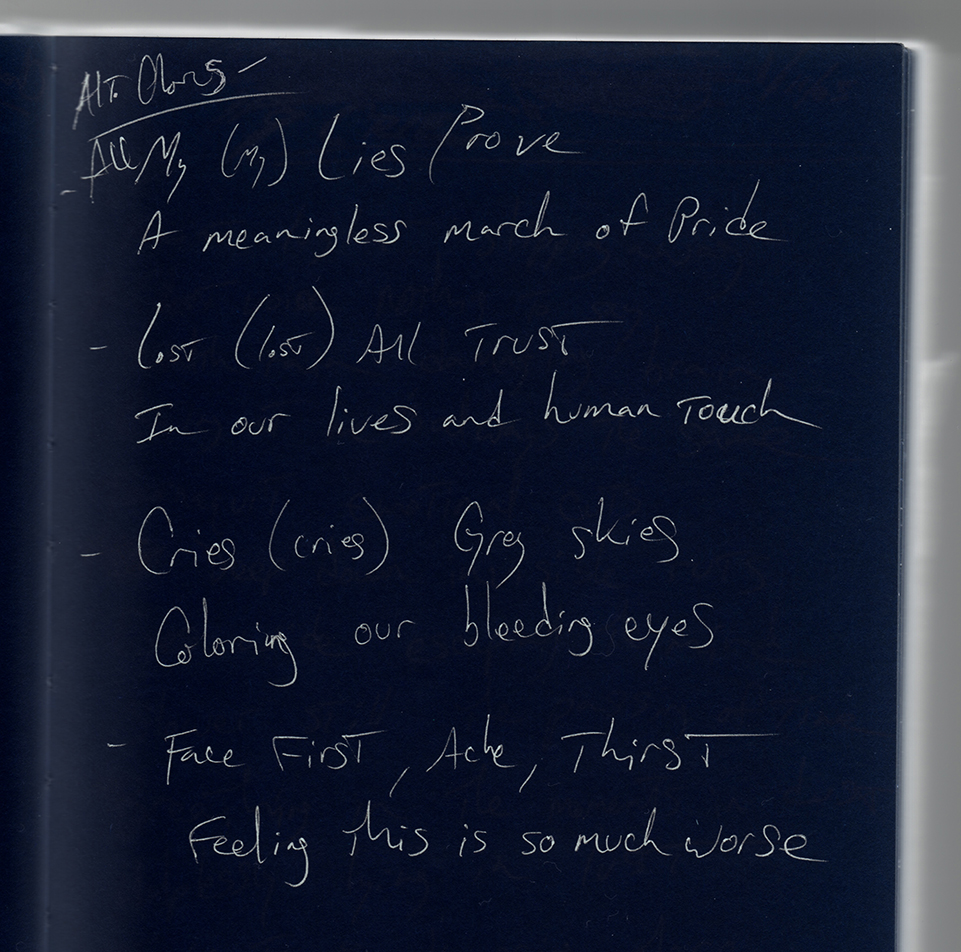 Alt.
- All My (my) Lies Prove
A meaningless march of Pride
- Lost (lost) All Trust
In our lives and human Touch
- Cries (cries) Grey skies
Coloring our bleeding eyes
- Face First, Ache, Thirst
Feeling this is so much worse